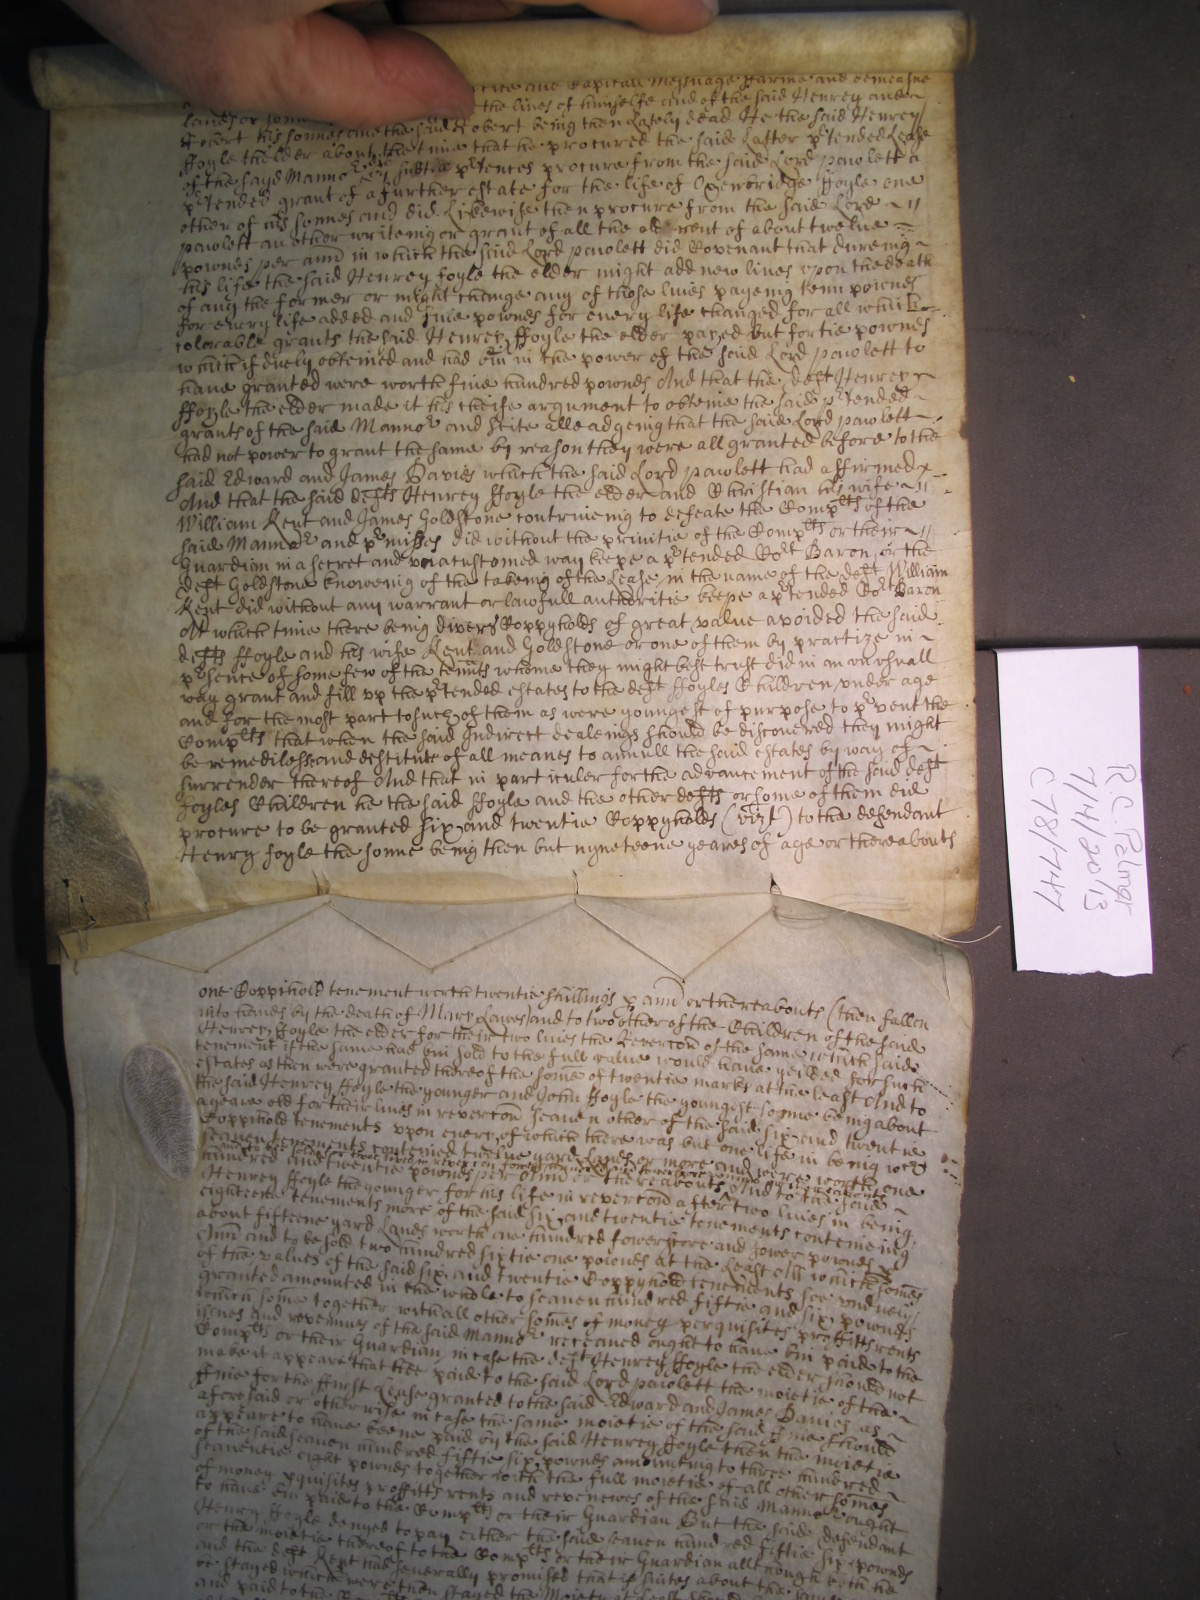 Scite and Capitall Messuage Farme and demeasne
landes for the lives of himselfe and of the said Henrey and
Robert his sonnes and the said Robert being then lately dead He the said Henrey
ffoyle thelder about the time that he procured the said Latter ptended Lease
of the sayd Mannor did procure from the said Lord pawlett a
ptended grant of a further estate for the life of Oxenbridge ffoyle one
other of his sonnes and did Likewise then procure from the said Lord
pawlett an other writeinge or grant of all the old rent of about twelve
pownes per ann in which the said Lord pawlett did Covenant that dureing
his life the said Henrey foyle the elder might add new lives upon the death
of any the former or might change any of those lives payeing tenn pownes
for every life added and five pownes for every life changed for all which
colorable grants the said Henrey ffoyle the elder payed but fortie pownes
which if duely obteined and had bin in the power of the said Lord pawlett to
have granted were worth five hundred pownds And that the deft Henrey
ffoyle the elder made it his cheife argument to obteine the said ptended
grants of the said Mannor and Scite alleadgeing that the said Lord pawlett
had not power to grant the same by reason they were all granted before to the
said Edward and James Davies which the said Lord pawlett had affirmed
And that the said defts Henrey ffoyle the elder and Christian his wife
William Kent and James Goldstone contriveing to defeate the Complts of the
said Mannor and pmisses did without the privitie of the Complts or their
Guardian in a secret and unacustomed way keepe a ptended Cort Baron or the
deft Goldstone knoweing of the takeing of the Lease in the name of the deft William
Kent did without any warrant or lawfull authoritie keepe a ptended Cort Baron
At which time there being divers Coppyholds of great value avoided the said
defts ffoyle and his wife Kent and Goldstone or one of them by practize in
psence of some few of the tennts whome they might best trust did in an unusuall
way grant and fill up the ptended estates to the deft ffoyles Children under age
and for the most part to such of them as were youngest of purpose to pvent the
Complts that when the said Indirect dealeings should be discovered they might
be remedilesse and destitute of all meanes to annull the said estates by way of
surrender thereof And that in particuler for the advancement of the said deft
foyles Children he the said ffoyle and the other defts or some of them did
procure to be granted six and twentie Coppyholds (vizt) to the defendant
Henry foyle the sonne being then but nyneteene yeares of age or thereabouts
one Coppihold tenement worth twentie shillings p ann or thereabouts (then fallen
into hands by the death of Mary Lawes) and to two other of the Children of the said
Henrey ffoyle the elder for their two lives the Revercon of the same which said
tenement if the same had bin sold to the full value would have yeilded for such
estates as then were granted thereof the some of twentie marks at the least And to
the said Henrey ffoyle the younger and John ffoyle the youngest sonne being about
a yeare old for their lives in revercon seaven other of the said six and twentie
Coppihold tenements upon every of which there was but one life in being
seaven tenements conteined twelve yard Lands or more and were worth one
hundred and twentie pownes per Ann or thereabouts And to the said
Henrey ffoyle the younger for his life in revercon after two lives in being
eighteene tenements more of the said six and twentie tenements conteineing
about fifteene yard Lands worth one hundred fowerscore and fower pownes
Ann and to be sold two hundred sixtie one pownes at the Least All which somes
of the values of the said six and twentie Coppyhold tenements soe
granted amounted in the whole to seaven hundred fiftie and six pownds
which some together with all other somes of money perquisites proffitts rents
issues and revenues of the said Mannor received ought to have bin paid to the
Complts or their Guardian in case the deft Henrey ffoyle the elder should not
make it appeare that hee paid to the said Lord pawlett the moietie of the
ffine for the ffirst Lease granted to the said Edward and James Davies as
aforesaid or otherwise in case the same moietie of the said ffine should
appeare to have beene paid by the said Henrey ffoyle then the moietie
of the said seaven hundred fiftie six pownes amounting to three hundred
seaventie eight pownds together with the full moietie of all other somes
of money pquisites proffitts rents and revenewes of the said Mannor ought
to have bin paid to the Complts or their Guardian But the said defendant
Henrey ffoyle denyed to pay either the said seaven hundred fiftie six pownds
or the moietie thereof to the Complts or their Guardian allthough both he
and the deft Kent had severally promised that if suites about the
be stayed which were then stayed the Moietie
and paid to the
R.C. Palmer
7/14/2013
C78/747